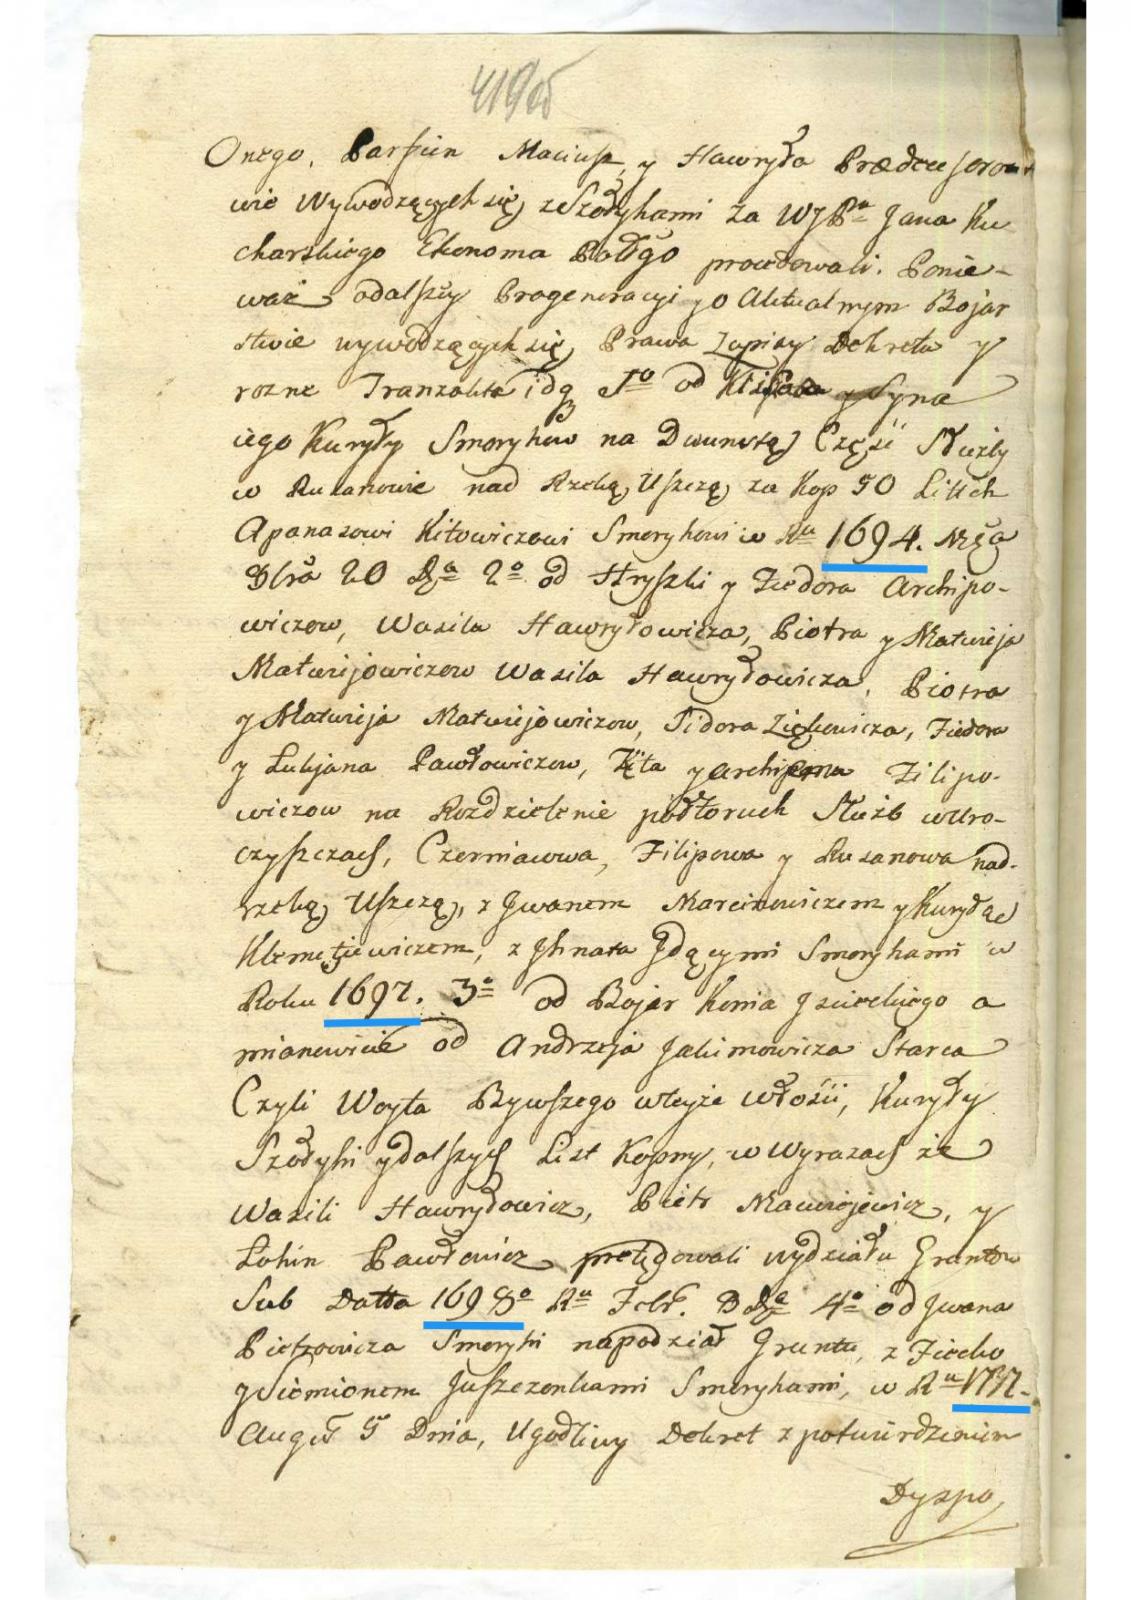 419
Onego, Parfien Maciusz, y Hawryła Prædecessoro-
wie Wywodzących się, ze Szołyhami za WJPa Jana Ku
charskiego Ekonoma procedowali. Ponie-
waż odalszey Progeneracyi y o Aktualnym Bojar
stwie wywodzących się, Prawa Zapisy Dekreta y
rozne Tranzakta idą 1o od y Syna
iego Kuryły Smorykow na Dwunastą Część Służby
w Ruzanowie nad Rzeką, Uszczą, za Kop 50 Litlch
Apanasowi Kitowiczowi Smorykowi w Ru 1694. Msca
Dbra 20 Da 2o od Hryszki y Fiedora Archipo-
wiczow, Wasila Hawryłowicza, Piotra y Matwieja
Matwijowiczow Wasila Hawryłowicza, Piotra
y Matwieja Matwiejowiczow, Sidora Zięhowicza, Fiedora
y Lukjana Pawłowiczow, Tita y Archipa Filipo-
wiczow na Rozdzielenie połtoruch Służb w Uro-
czyszczach, Czerniawwa, Filipowa y Ruzanowa nad-
rzeką, Uszczą, z Jwanem Marcinowiczem y Kuryłą
Klemetjewiczem, z Jhnata Jdącymi Smorykami w
Roku 1697. 3o od Bojar Konia Jzockiego a
mianowicie od Andrzeja Jakimowicza Starca
Czyli Woyta Bywszego wteyże włości, Kuryły
Szołyhi y dalszych List Kopny, w Wyrazach że
Wasili Hawryłowicz, Piotr Maciejewicz, y
Lohin Pawłowicz pretędowali wydziału Gruntow
Sub Datta 1698o Ru Febr. Da 4o od Jwana
Pietrowicza Smoryki napodział Gruntu, z Fiedko
y Siemionem Juszczenkami Smorykami, w Ru 1717.
August 5 Dnia, Ugodliwy Dekret z potwierdzeniem
Dyspo